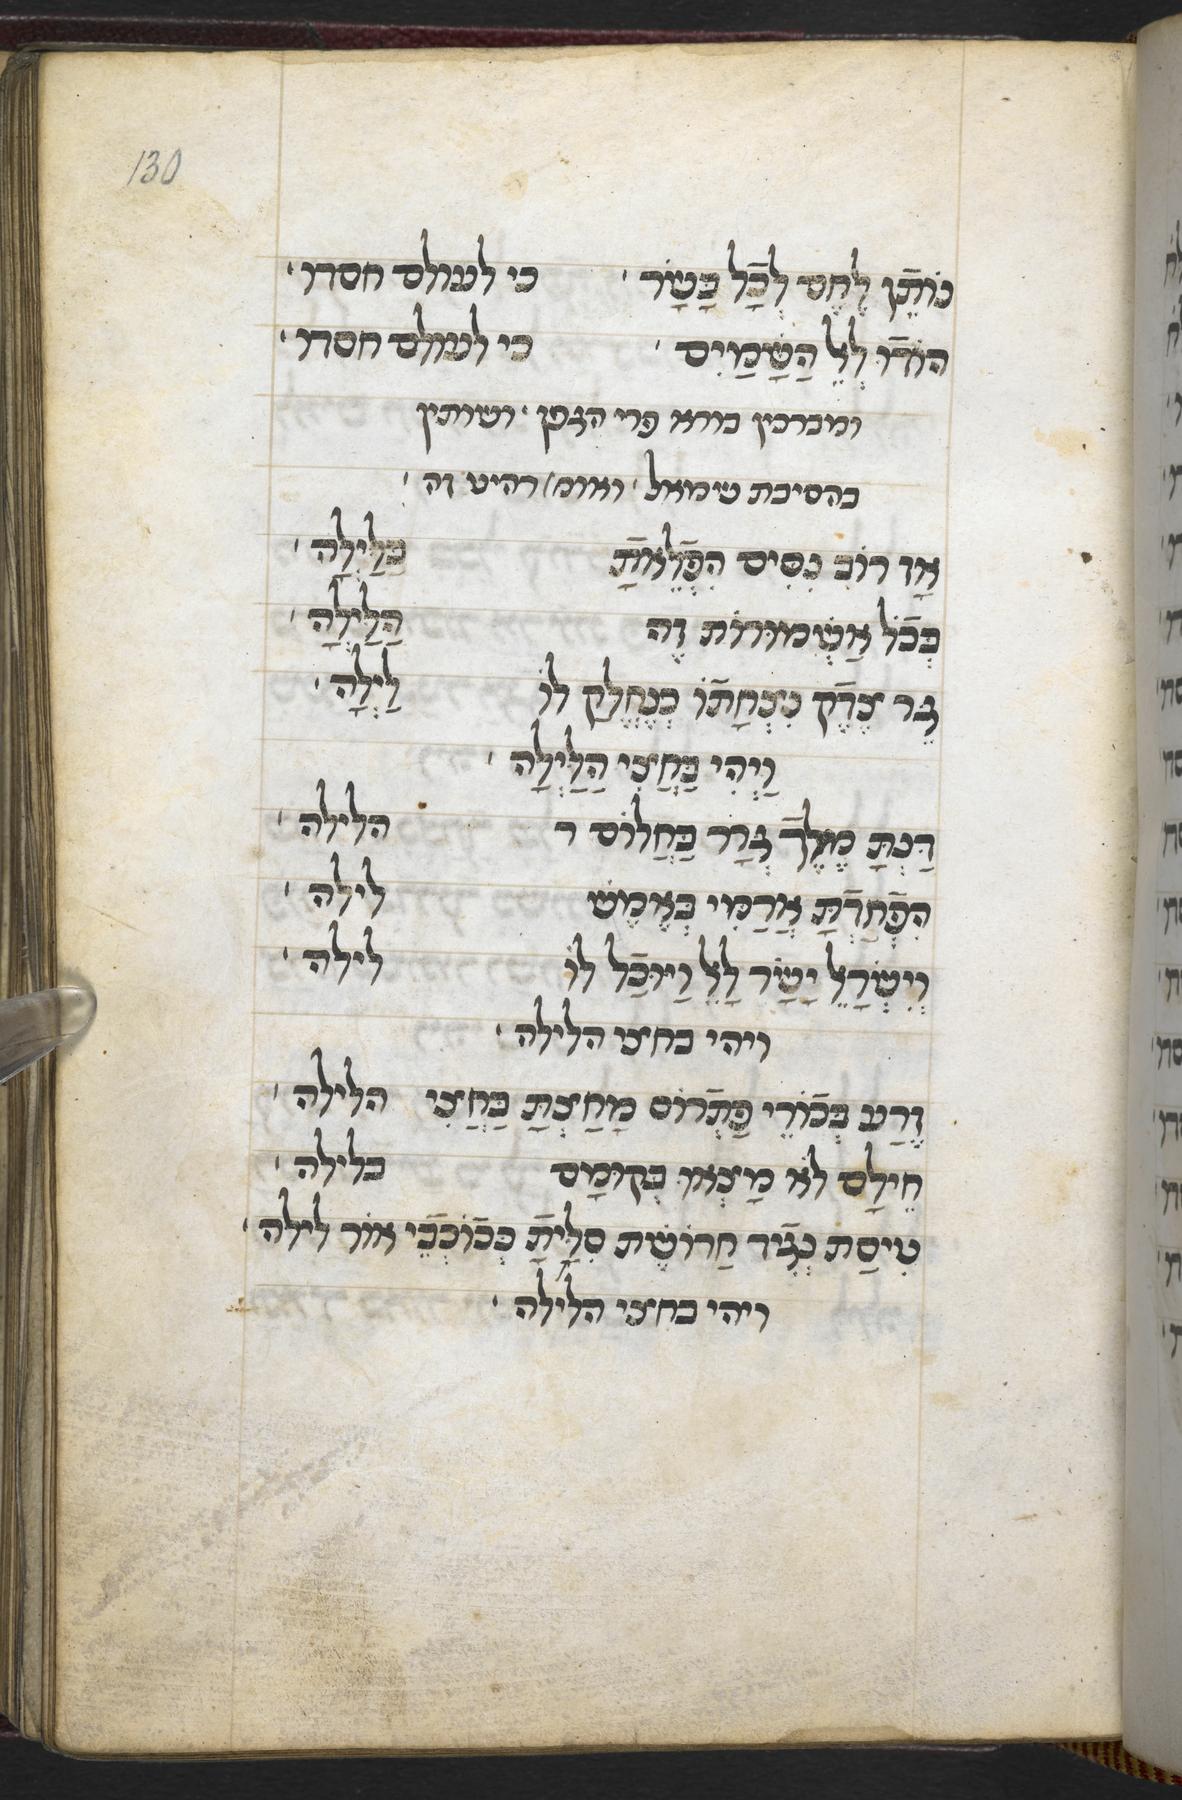 130
נוֹתֵן לֶחֶם לְכָל בָּשָׂר · כי לעולם חסדו ·
הוֹדוּ לְאֵל הַשָּׁמַיִם · כי לעולם חסדו ·
ומברכין בורא פרי הגפן · ושותין
בהסיבת שמאל · ואומ׳ רהיט זה ·
אָז רוֹב נִסִּים הִפְלֵאתָ בַּלַּיְלָה ·
בְּכֹל אַשְׁמוּרוֹת זֶה הַלַּיְלָה ·
גֵּר צֶדֶק נִצַּחְתּוֹ כְּנֶחֱלַק לוֹ לַיְלָה ·
וַיְהִי בַּחֲצִי הַלַּיְלָה ·
דַּנְתָּ מֶלֶךְ גְּרָר בַּחֲלוֹם ר הלילה ·
הִפְחַדְתָּ אֲרַמִּי בְּאֶמֶשׁ לילה ·
וְיִשְׂרָאֵל יָשַׂר לָאֵל וַיּוּכַל לוֹ לילה ·
ויהי בחצי הלילה ·
זֶרַע בְּכוֹרֵי פַתְרוֹס מָחַצְתָּ בַּחֲצִי הלילה ·
חֵילָם לֹא מָצְאוּ בְּקוּמָם בלילה ·
טִיסַת נְגִיד חֲרוֹשֶׁת סִלִּיתָ בְּכוֹכְבֵי אוֹר לילה ·
ויהי בחצי הלילה ·